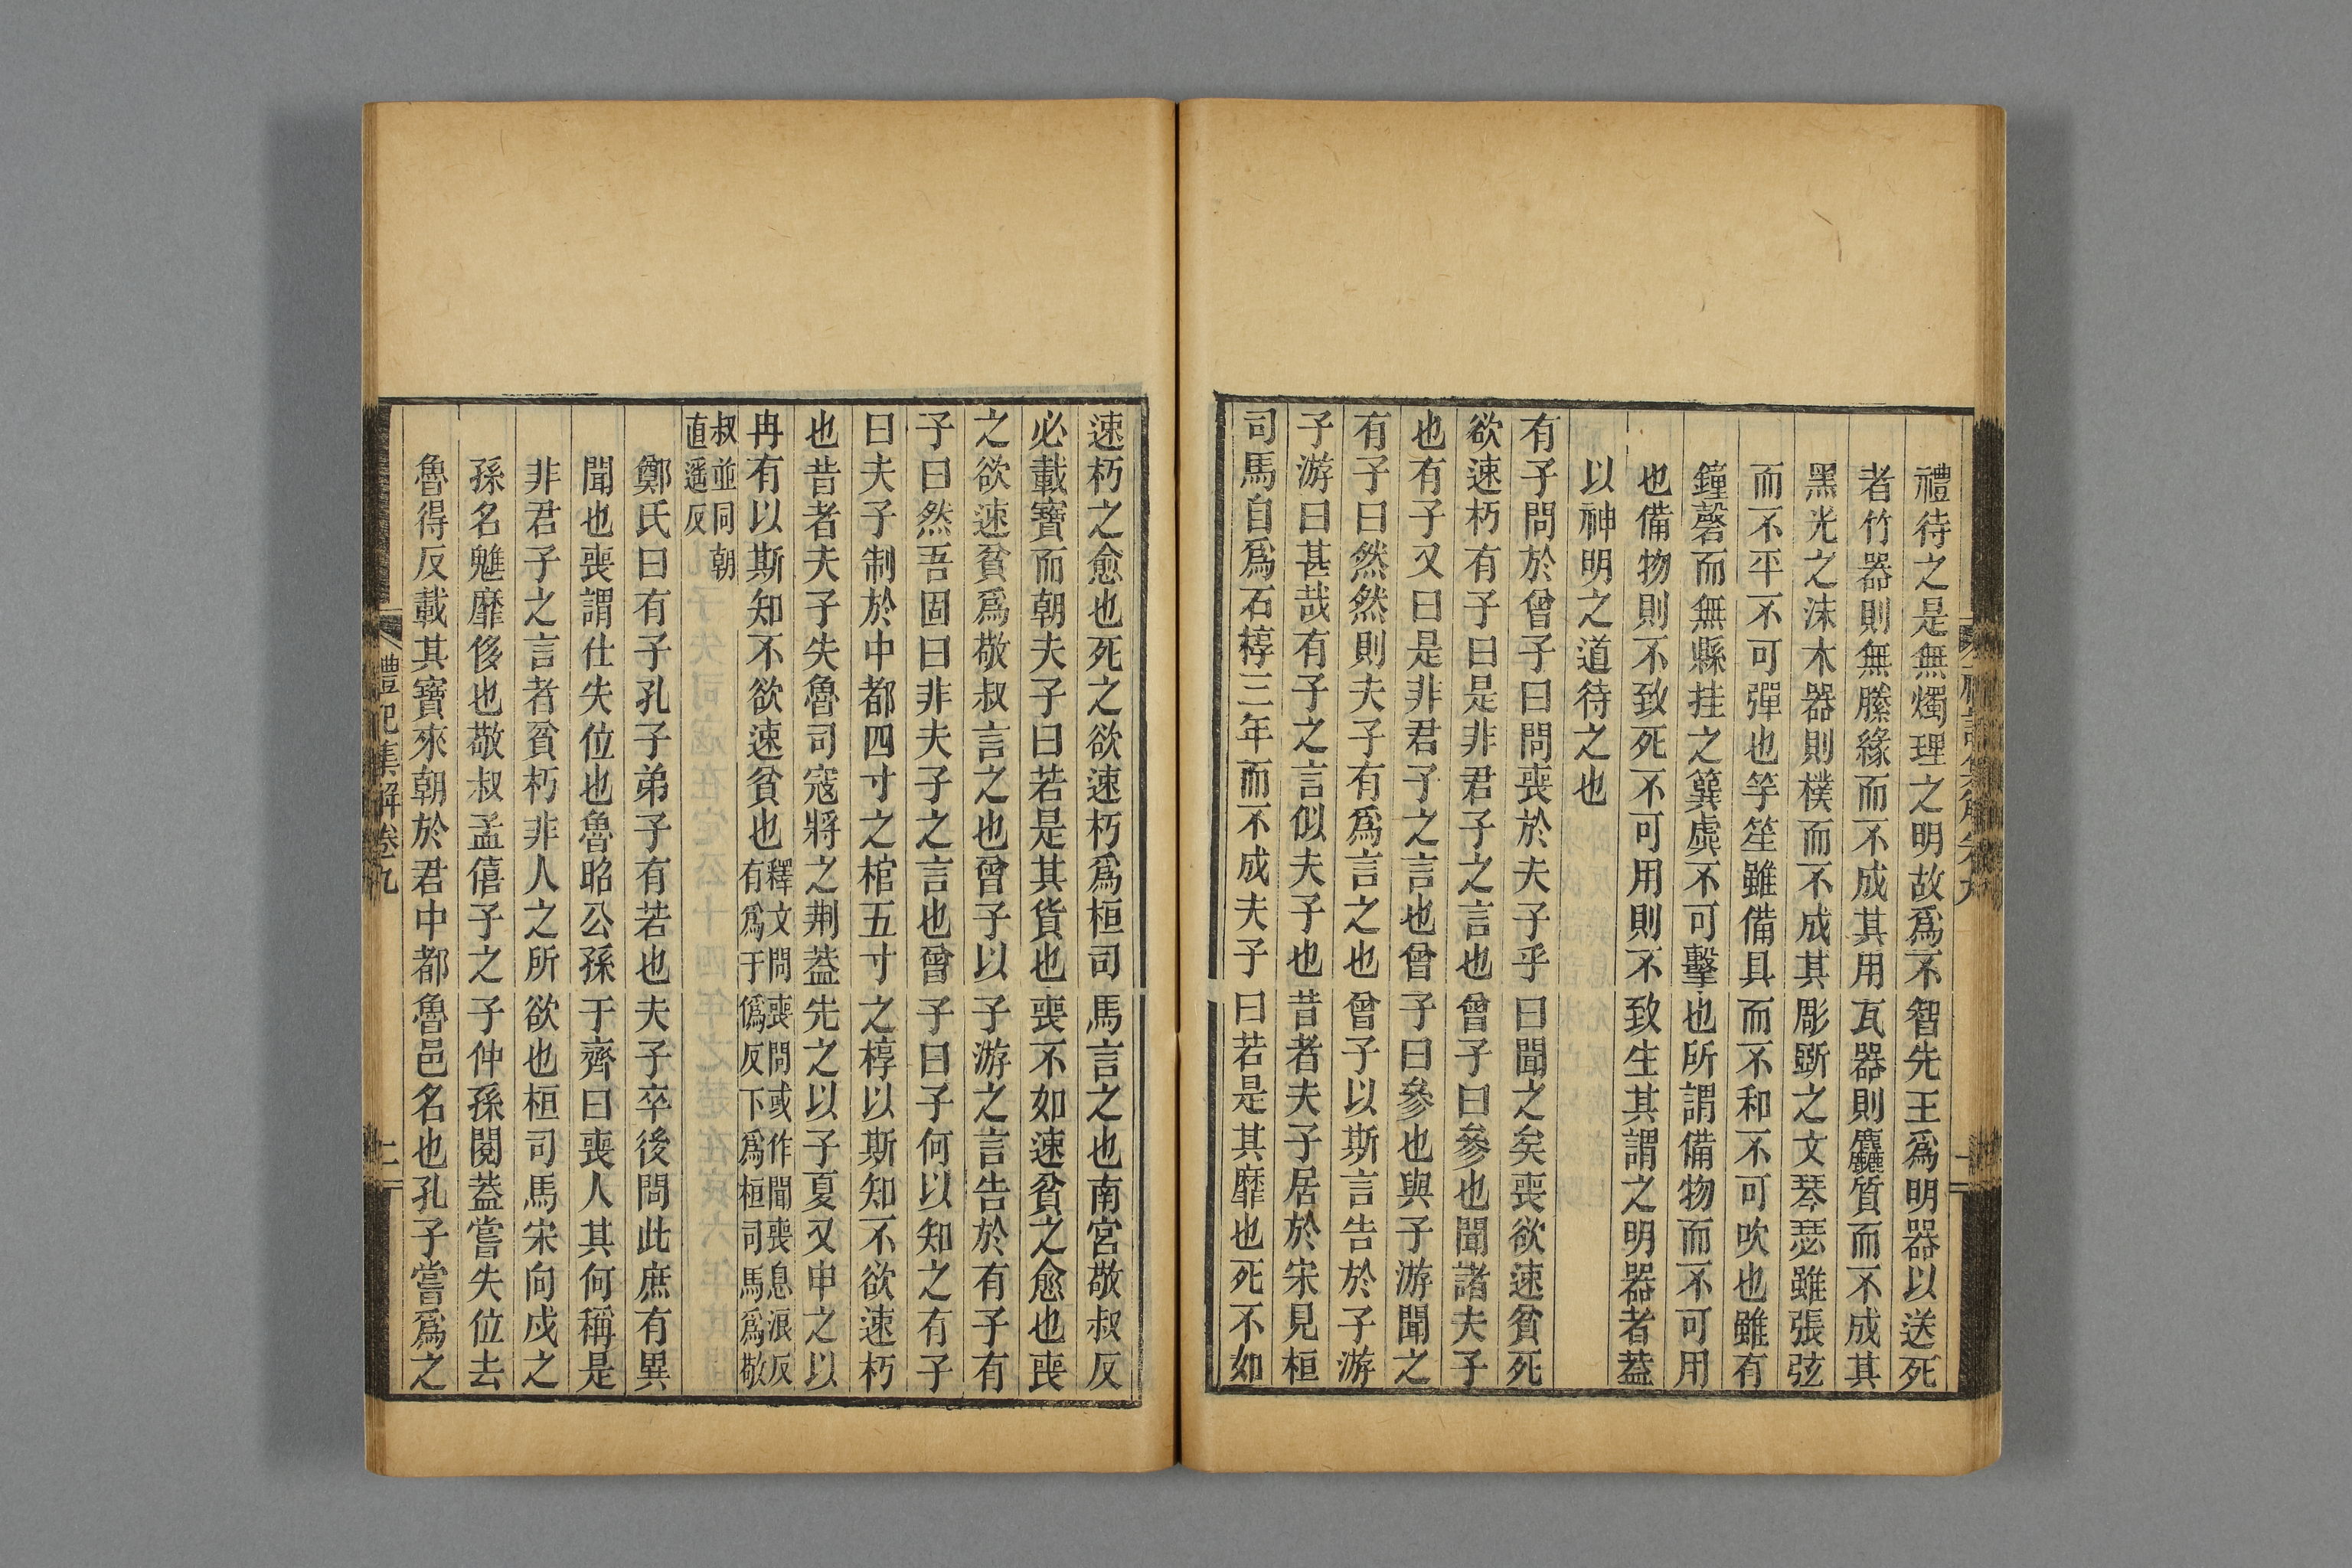 禮待之是無燭理之明故爲不智先王爲明器以送死
者竹器則無縢緣而不成其用瓦器則麤質而不成其
黑光之沬木器則樸而不成其彫斲之文琴瑟雖張弦
而不平不可彈也竽笙雖備具而不和不可吹也雖有
鐘磬而無縣挂之簨虡不可擊也所謂備物而不可用
也備物則不致死不可用則不致生其謂之明器者蓋
以神明之道待之也
有子問於曾子曰問喪於夫子乎曰聞之矣喪欲速貧死
欲速朽有子曰是非君子之言也曾子曰參也聞諸夫子
也有子又曰是非君子之言也曾子曰參也與子游聞之
有子曰然然則夫子有爲言之也曾子以斯言告於子游
子游曰甚哉有子之言似夫子也昔者夫子居於宋見桓
司馬自爲石椁三年而不成夫子曰若是其靡也死不如
速朽之愈也死之欲速朽爲桓司馬言之也南宮敬叔反
必載寶而朝夫子曰若是其貨也喪不如速貧之愈也喪
之欲速貧爲敬叔言之也曾子以子游之言告於有子有
子曰然吾固曰非夫子之言也曾子曰子何以知之有子
曰夫子制於中都四寸之棺五寸之椁以斯知不欲速朽
也昔者夫子失魯司寇將之荆蓋先之以子夏又申之以
冉有以斯知不欲速貧也
釋文問喪問或作聞喪息浪反
有爲于僞反下爲桓司馬爲敬
叔並同朝
直遥反
鄭氏曰有子孔子弟子有若也夫子卒後問此庶有異
聞也喪謂仕失位也魯昭公孫于齊曰喪人其何稱是
非君子之言者貧朽非人之所欲也桓司馬宋向戍之
孫名魋靡侈也敬叔孟僖子之子仲孫閱蓋嘗失位去
魯得反載其寶來朝於君中都魯邑名也孔子嘗爲之
禮記集解卷九
二